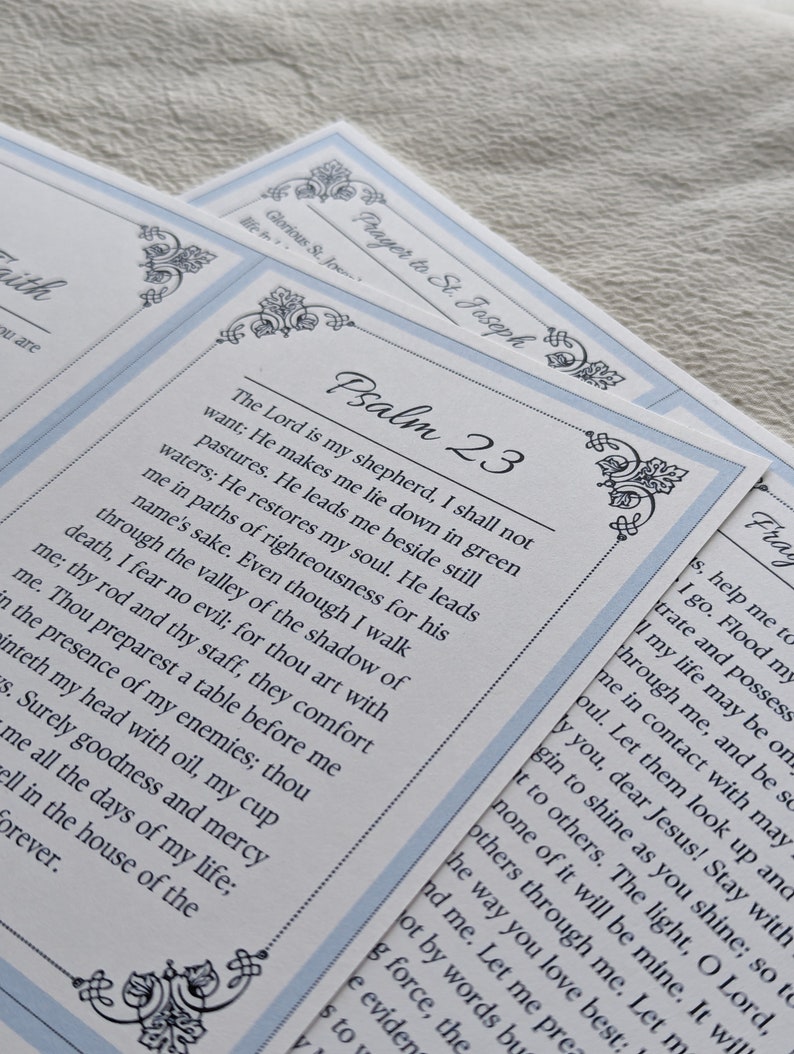 Faith
you are
Prayer to St. Joseph
Glorious St.
Psalm 23
The Lord is my shepherd, I shall not
want; He makes me lie down in green
pastures. He leads me beside still
waters; He restores my soul. He leads
me in paths of righteousness for his
name's sake. Even though I walk
through the valley of the shadow of
death, I fear no evil; for thou art with
me; thy rod and thy staff, they comfort
me. Thou preparest a table before me
in the presence of my enemies; thou
my head with oil, my cup
Surely goodness and mercy
me all the days of my life;
in the house of the
forever.
help me to
I go. Flood my
and possess
my life may be only
through me, and be so
me in contact with may
soul. Let them look up and
you, dear Jesus! Stay with
to shine as you shine; so to
to others. The light, O Lord,
none of it will be mine. It will
others through me. Let me
the way you love best;
me. Let me
not by words but
force, the